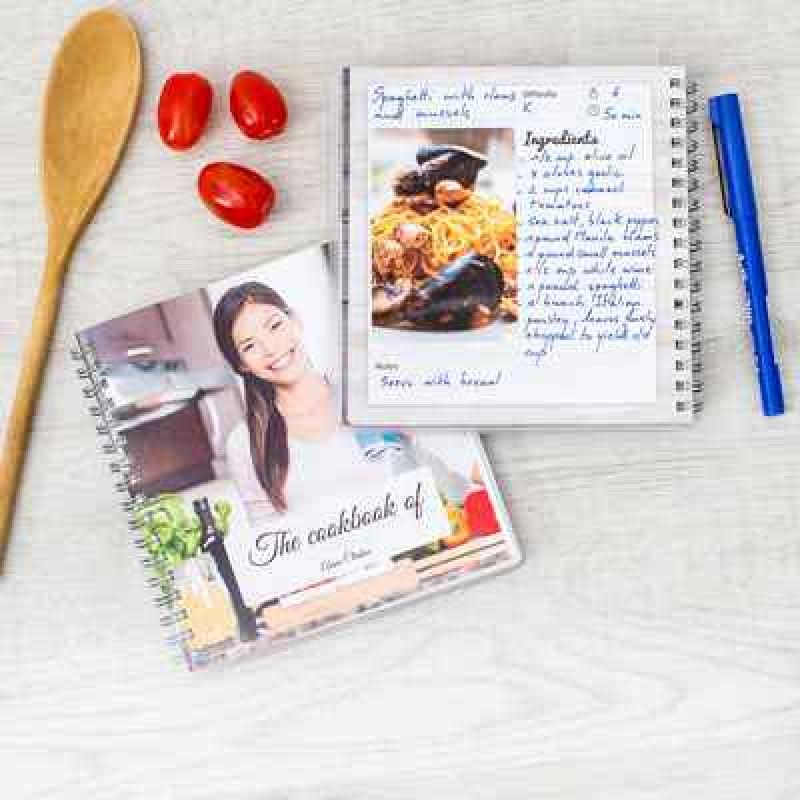 Spaghetti with clams
and mussels
6
50 min
Ingredients
cup olive oil
cloves garlic
2 cups canned
tomatoes
sea salt, black pepper
pound Manila clams
pound small mussels
cup white wine
pound spaghetti
bunch Italian
parsley, leaves
chopped to yield
cup
Notes
Serve with bread
The cookbook of